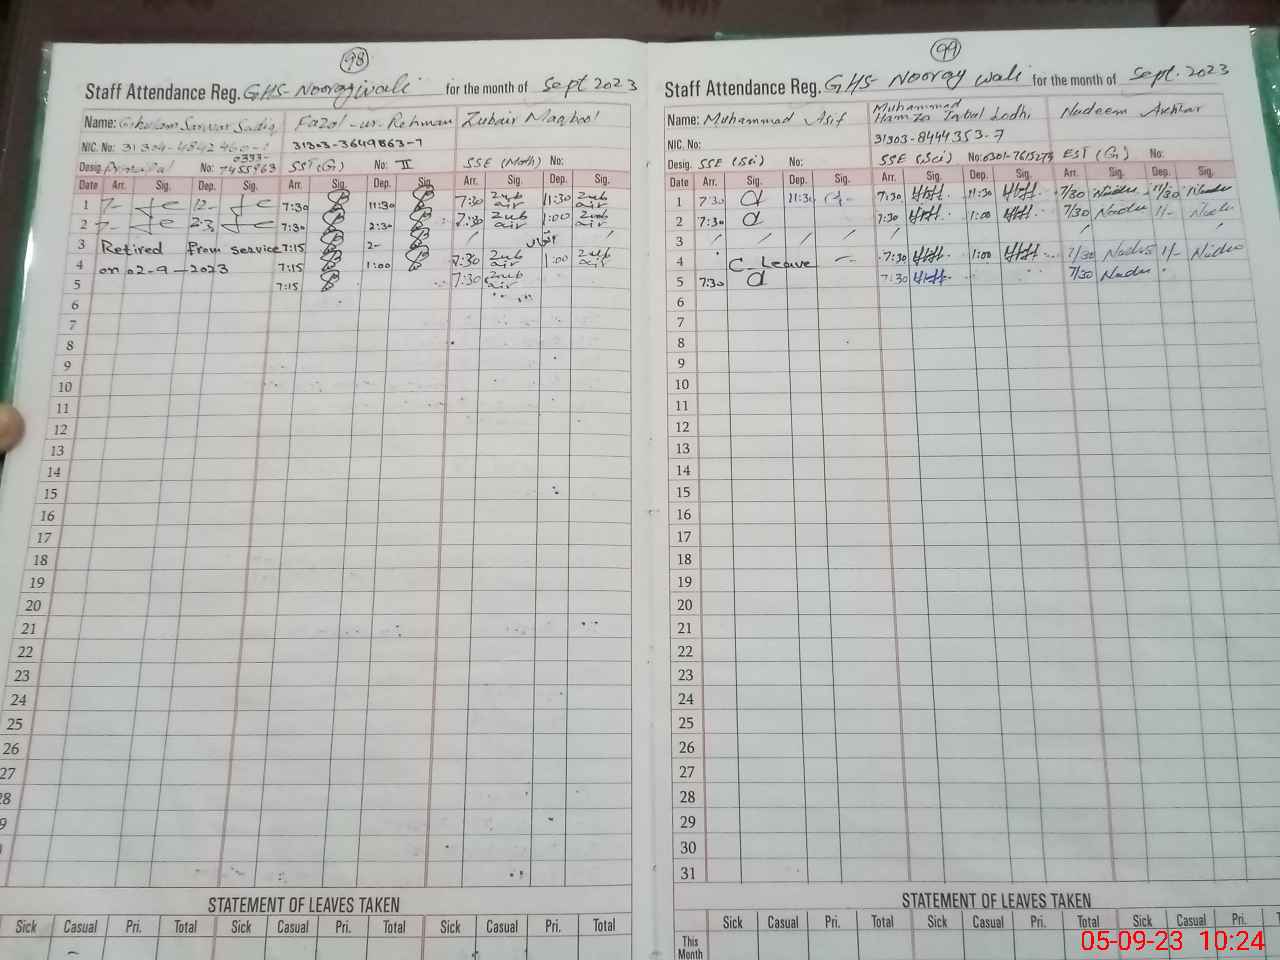 98
Staff Attendance Reg. GHS- Nooraywali for the month of Sept 2023
Name: Ghulam Sarwar Sadiq Fazal-ur-Rehman Zubair Maqbool
NIC. No: 31303-3649863-7
Desig. Principal No: 0333-7455863 SST (G) No: II SSE (Math) No:
Date Arr. Sig. Dep. Sig. Arr. Sig. Dep. Sig. Arr. Sig. Dep. Sig.
1 7- 12- 7:30 11:30 7:30 Zubair 11:30 Zubair
2 7- 7:30 2:30 7:30 Zubair 1:00 Zubair
3 Retired from service 7:15 2- اتوار
4 on 02-9-2023 7:15 1:00 7:30 Zubair 1:00 Zubair
5 7:15 7:30 Zubair
6
7
8
9
10
11
12
13
14
15
16
17
18
19
20
21
22
23
24
25
26
27
28
9
STATEMENT OF LEAVES TAKEN
Sick Casual Pri. Total Sick Casual Pri. Total Sick Casual Pri. Total
99
Staff Attendance Reg. GHS- Nooray Wali for the month of Sept. 2023
Name: Muhammad Asif Muhammad Hamza Iqbal Lodhi Nadeem Akhtar
NIC. No: 31303-8444353-7
Desig. SSE (Sci) No: SSE (Sci) No: 0301-7615273 EST (G) No:
Date Arr. Sig. Dep. Sig. Arr. Sig. Dep. Sig. Arr. Sig. Dep. Sig.
1 7:30 11:30 7:30 11:30 7/30 11/30
2 7:30 7:30 1:00 7/30 1/-
3
4 C. Leave 7:30 1:00 7/30 1/-
5 7:30 7:30 7/30
6
7
8
9
10
11
12
13
14
15
16
17
18
19
20
21
22
23
24
25
26
27
28
29
30
31
STATEMENT OF LEAVES TAKEN
Sick Casual Pri. Total Sick Casual Pri. Total Sick Casual Pri.
This Month
05-09-23 10:24